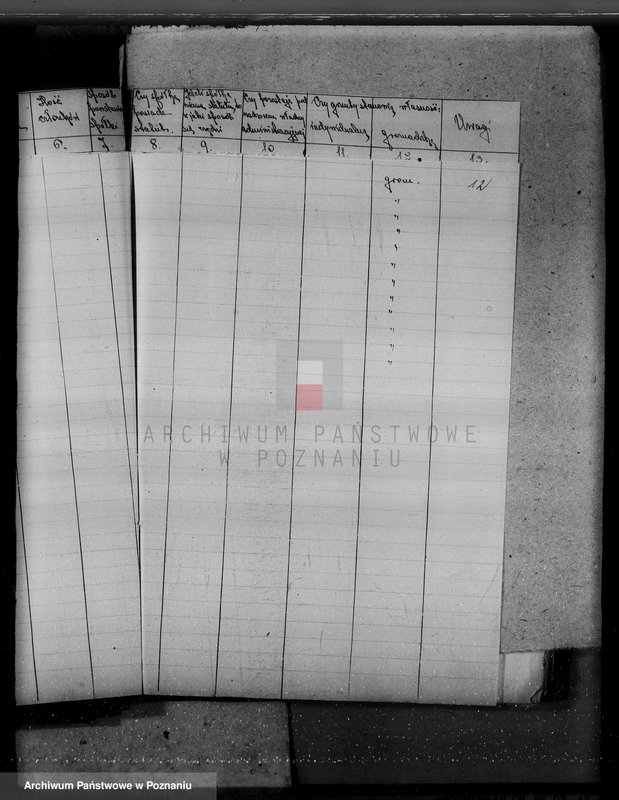 Ilość członków
Sposób powstania spółki
Czy spółka posiada statut.
Jeżeli spółka niema statutu to w jaki sposób się rządzi
Czy pozostaje pod nadzorem władzy administracyjnej
Czy grunty stanowią własność:
indywidualną
gromadzką
Uwagi
6. 7. 8. 9. 10 11. 12. 13.
grom. 12
"
"
"
"
"
"
"
"
"
"
"
ARCHIWUM PAŃSTWOWE
W POZNANIU
Archiwum Państwowe w Poznaniu